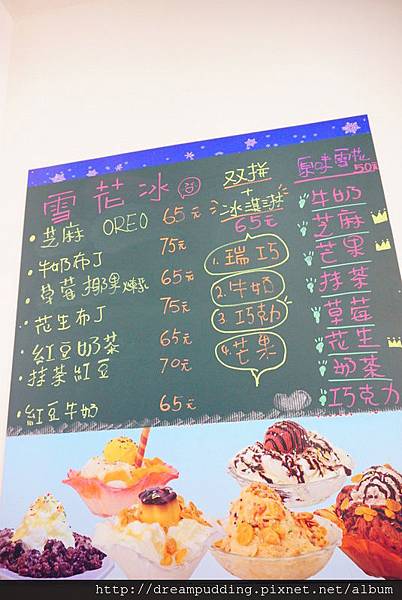 雪花冰
芝麻 OREO 65元
牛奶布丁 75元
草莓椰果煉乳 65元
花生布丁 75元
紅豆奶茶 65元
抹茶紅豆 70元
紅豆牛奶 65元
双拼
+
冰淇淋
65元
1. 瑞巧
2. 牛奶
3. 巧克力
4. 芒果
原味雪花
50元
牛奶
芝麻
芒果
抹茶
草莓
花生
奶茶
巧克力
http://dreampudding.pixnet.net/album